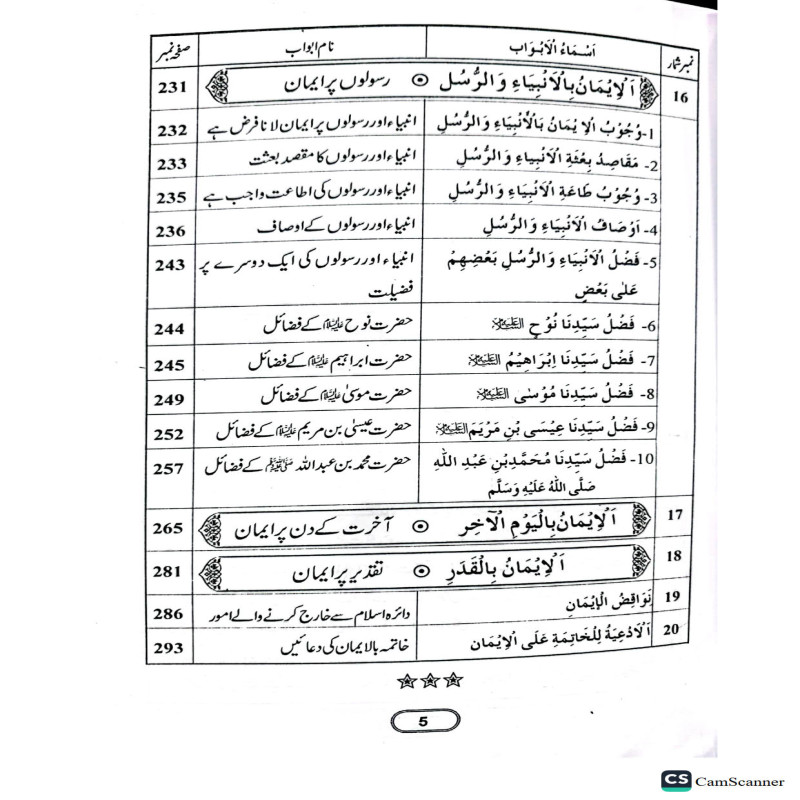 نمبر شمار اَسْمَاءُ الْاَبْوَاب نام ابواب صفحہ نمبر
16 اَلْاِيْمَانُ بِالْاَنْبِيَاءِ وَالرُّسُل رسولوں پر ایمان 231
1- وُجُوْبُ الْاِيْمَانِ بَالْاَنْبِيَاءِ وَالرُّسُلِ انبیاء اور رسولوں پر ایمان لانا فرض ہے 232
2- مَقَاصِدُ بِعْثَةِ الْاَنْبِيَاءِ وَالرُّسُلِ انبیاء اور رسولوں کا مقصد بعثت 233
3- وُجُوْبُ طَاعَةِ الْاَنْبِيَاءِ وَالرُّسُلِ انبیاء اور رسولوں کی اطاعت واجب ہے 235
4- اَوْصَافُ الْاَنْبِيَاءِ وَالرُّسُلِ انبیاء اور رسولوں کے اوصاف 236
5- فَضْلُ الْاَنْبِيَاءِ وَالرُّسُلِ بَعْضِهِمْ انبیاء اور رسولوں کی ایک دوسرے پر 243
عَلٰى بَعْضٍ فضیلت
6- فَضْلُ سَيِّدِنَا نُوْحٍ عليه السلام حضرت نوح علیہ السلام کے فضائل 244
7- فَضْلُ سَيِّدِنَا اِبْرَاهِيْمُ عليه السلام حضرت ابراہیم علیہ السلام کے فضائل 245
8- فَضْلُ سَيِّدِنَا مُوْسٰى عليه السلام حضرت موسیٰ علیہ السلام کے فضائل 249
9- فَضْلُ سَيِّدِنَا عِيْسَى بْنِ مَرْيَمَ عليه السلام حضرت عیسیٰ بن مریم علیہ السلام کے فضائل 252
10- فَضْلُ سَيِّدِنَا مُحَمَّدِبْنِ عَبْدِ اللّٰهِ حضرت محمد بن عبداللہ ﷺ کے فضائل 257
صَلَّى اللّٰهُ عَلَيْهِ وَسَلَّم
17 اَلْاِيْمَانُ بِالْيَوْمِ الْآخِرِ آخرت کے دن پر ایمان 265
18 اَلْاِيْمَانُ بِالْقَدَرِ تقدیر پر ایمان 281
19 نَوَاقِضُ الْاِيْمَانِ دائرہ اسلام سے خارج کرنے والے امور 286
20 اَلْاَدْعِيَةُ لِلْخَاتِمَةِ عَلَى الْاِيْمَان خاتمہ بالایمان کی دعائیں 293
5
CS CamScanner